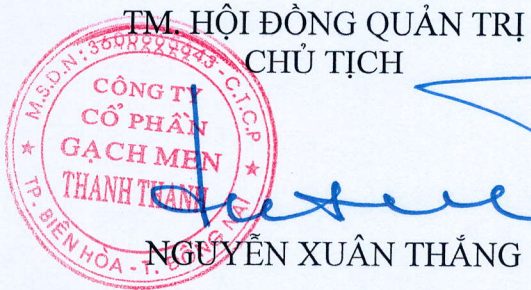 TM. HỘI ĐỒNG QUẢN TRỊ
CHỦ TỊCH
M.S.D.N: 3600000043-C.T.C.P
CÔNG TY
CỔ PHẦN
GẠCH MEN
THANH THANH
TP. BIÊN HÒA - T. ĐỒNG NAI
NGUYỄN XUÂN THẮNG